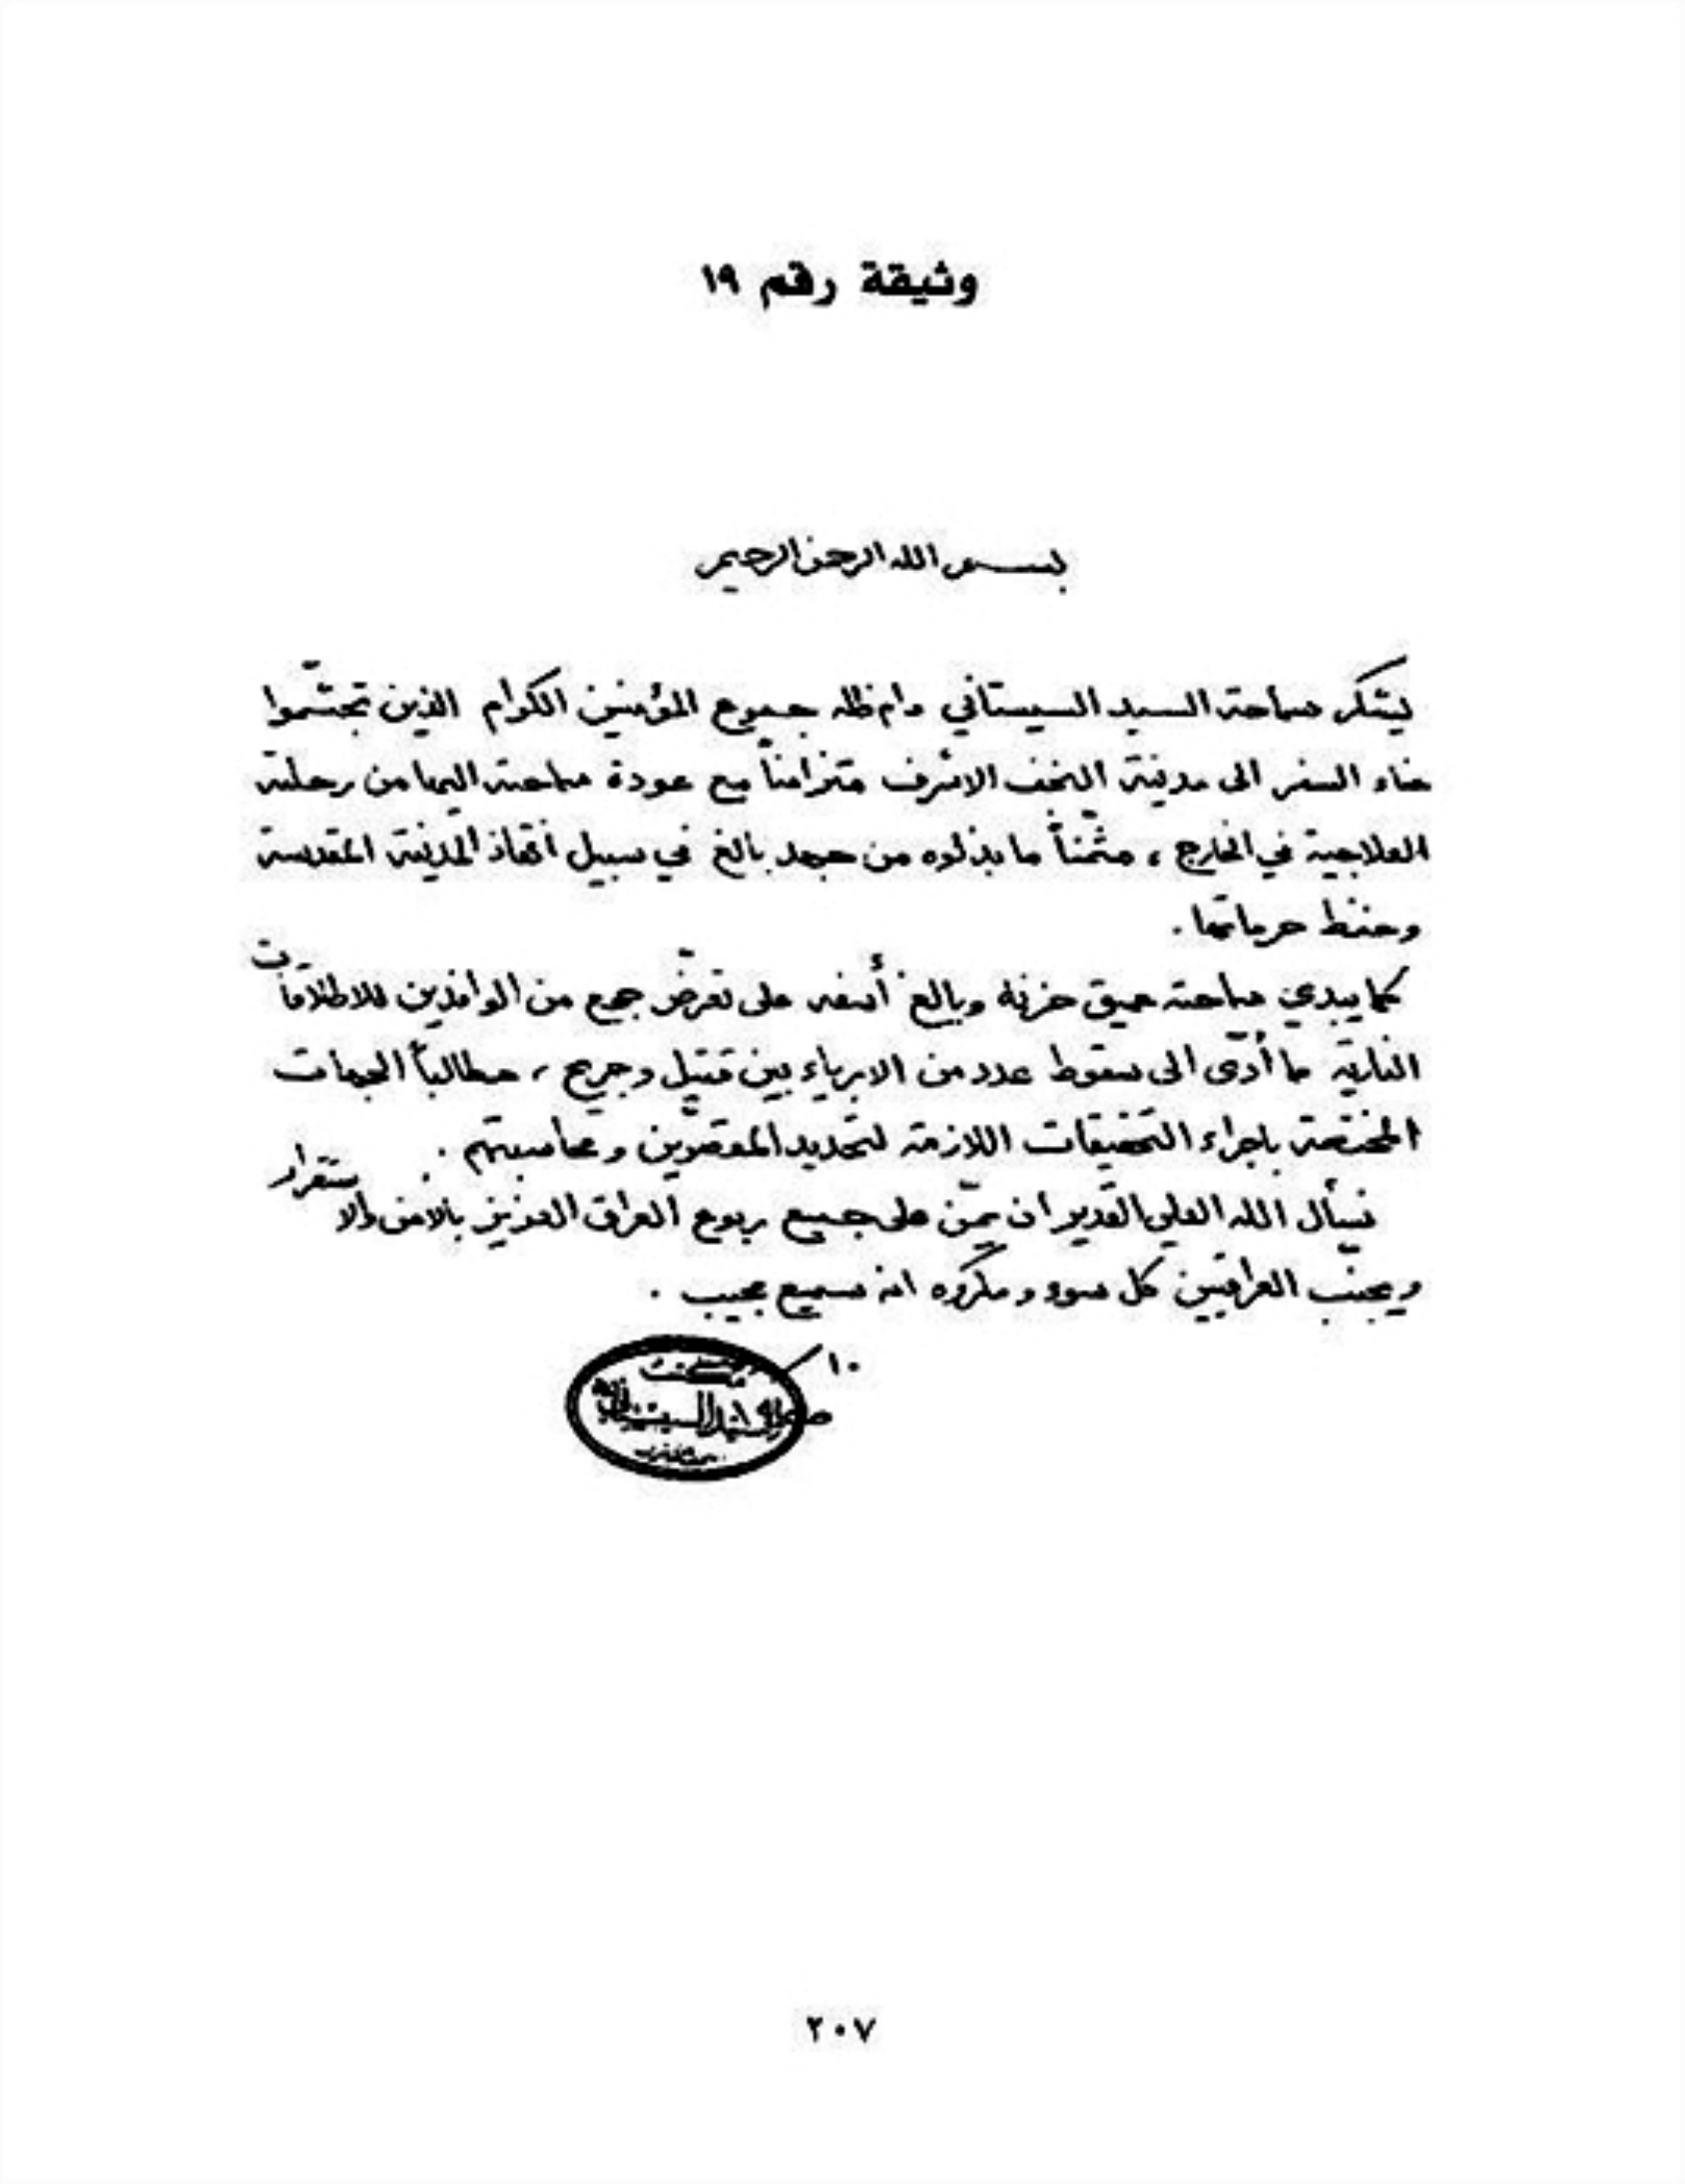 وثيقة رقم ١٩
بسم الله الرحمن الرحيم
يشكر سماحة السيد السيستاني دام ظله جموع المؤمنين الكرام الذين تجشّموا
عناء السفر الى مدينة النجف الاشرف متزامناً مع عودة سماحته اليها من رحلته
العلاجية في الخارج ، مثمّناً ما بذلوه من جهد بالغ في سبيل انقاذ المدينة المقدسة
وحفظ حرماتها .
كما يبدي سماحته عميق حزنه وبالغ أسفه على تعرّض جمع من الوافدين للاطلاقات
النارية مما أدّى الى سقوط عدد من الابرياء بين قتيل وجريح ، مطالباً الجهات
المختصة باجراء التحقيقات اللازمة لتحديد المقصّرين ومحاسبتهم .
نسأل الله العلي القدير ان يمنّ على جميع ربوع العراق العزيز بالأمن والاستقرار
ويجنّب العراقيين كل سوء ومكروه انه سميع مجيب .
مكتب
السيد السيستاني
٢٠٧